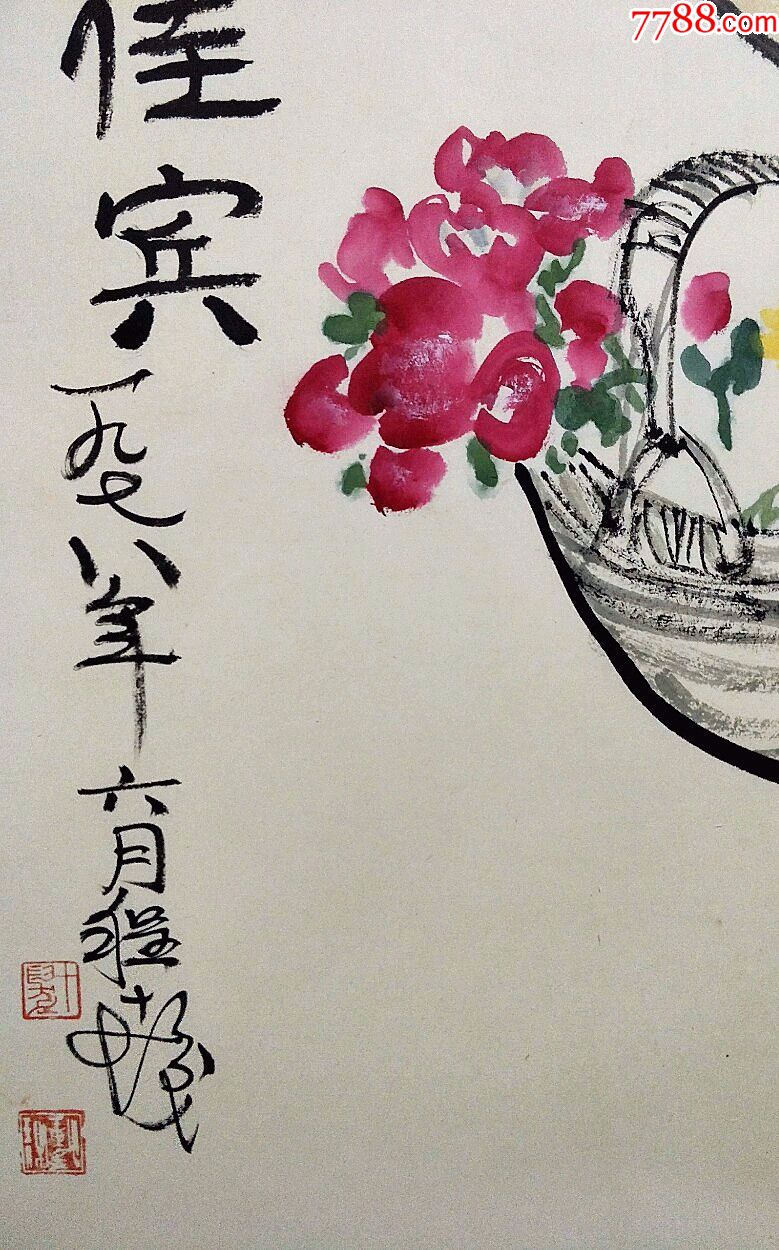 7788.com
佳宾
一九七八年六月程十发